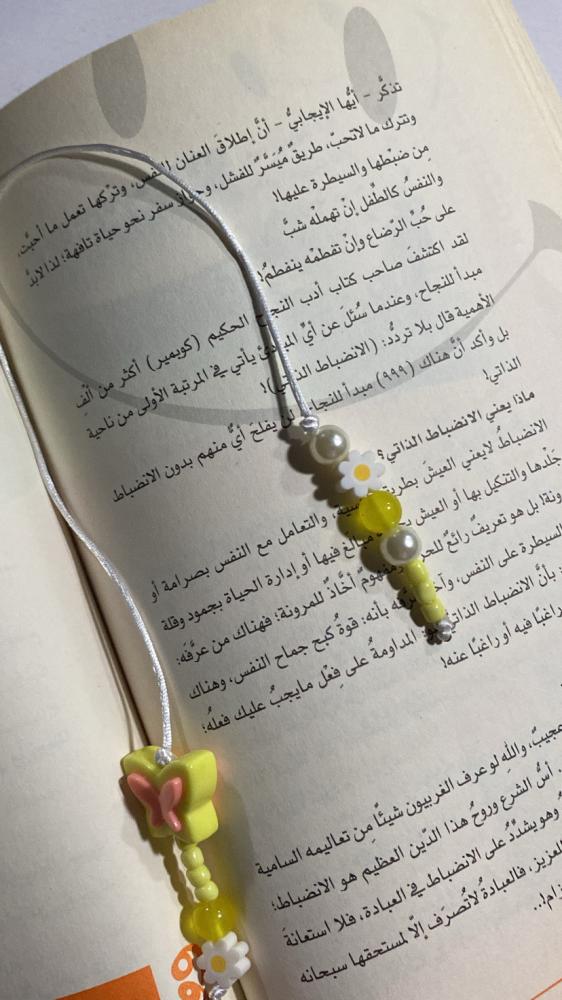 تذكَّر - أيُّها الإيجابيُّ - أنَّ إطلاقَ العنان النفس، وتركها تعمل ما أحبَّت،
وتترك ما لاتحبّ، طريقٌ مُيَسَّرٌ للفشل، سفر نحو حياة تافهة؛ لذا لابدَّ
من ضبطها والسيطرة عليها!
والنفسُ كالطِّفل إنْ تهملْه شبَّ
على حُبِّ الرّضاع وإنْ تفطمْه ينفطمُ!
لقد اكتشفَ صاحب كتاب أدب النجاح الحكيم (كويمير) أكثر من ألْفِ
مبدأ للنجاح، وعندما سُئلَ عن أيِّ يأتي في المرتبة الأولى من ناحية
الأهمية قال بلا تردُّد: (الانضباط الذاتي)!
بل وأكد أنَّ هناك (٩٩٩) مبدأ للنجاح لن يفلحَ أيٌّ منهم بدون الانضباط
الذاتي!
ماذا يعني الانضباط الذاتي؟
الانضباطُ لايعني العيشَ بطريقة والتعامل مع النفس بصرامة أو
جَلْدها والتنكيل بها أو العيش فيها أو إدارة الحياة بجمود وقلة
بل هو تعريفٌ رائعٌ ومفهومٌ أخَّاذٌ للمرونة؛ فهناك من عرَّفَه:
السيطرة على النفس، بأنه: قوةُ كبح جماح النفس، وهناك
بأنَّ الانضباط المداومةُ على فِعْل مايجبُ عليك فعلُه؛
راغبًا فيه أو راغبًا عنه!
عجيبٌ، واللهِ لو عرف الغربيون شيئًا مِن تعاليمه السامية
أسُّ الشرع وروحُ هذا الدّين العظيم هو الانضباط؛
وهو يشدّدُ على الانضباط في العبادة، فلا استعانةَ
العزيز، فالعبادةُ لاتُصرَف إلّا لمستحقها سبحانه